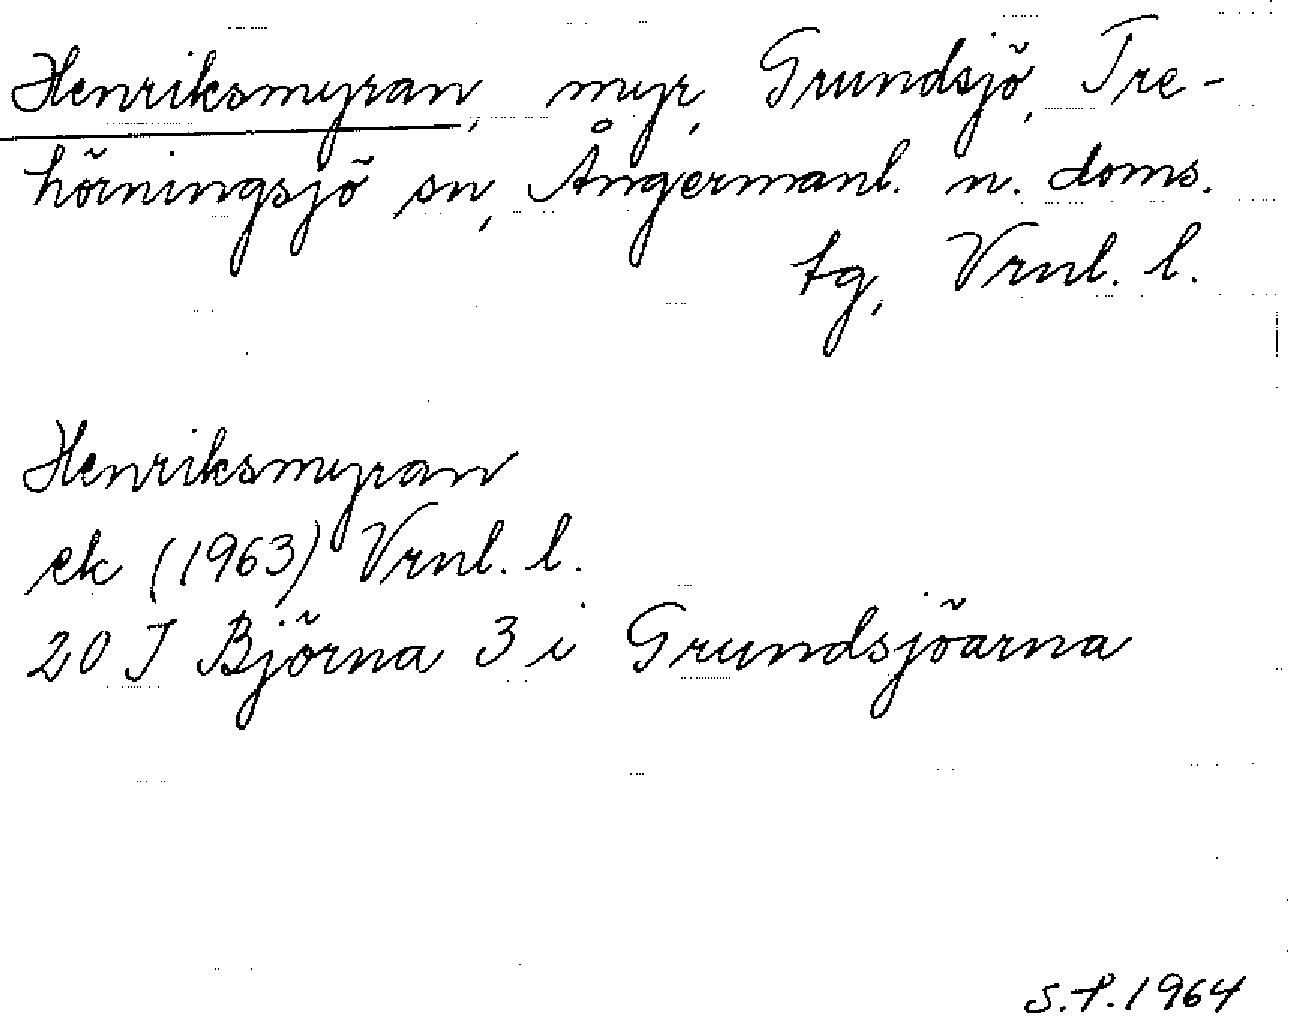 Henriksmyran, myr, Grundsjö, Tre-
hörningsjö sn, Ångermanl. n. doms.
tg, Vrnl. l.
Henriksmyran
ek (1963) Vrnl. l.
20 J Björna 3 i Grundsjöarna
S.P. 1964